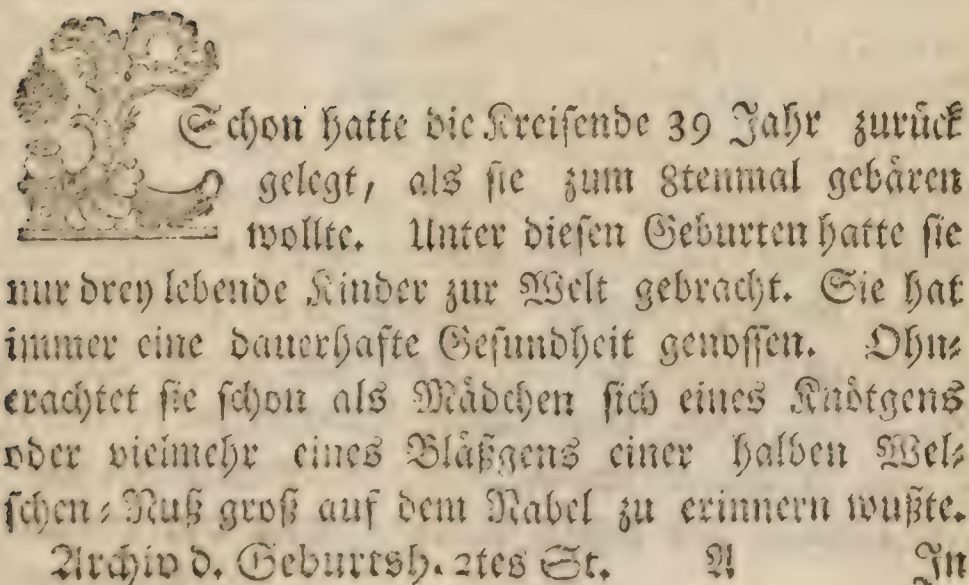 Schon hatte die Kreisende 39 Jahr zurück
gelegt, als sie zum 8tenmal gebären
wollte. Unter diesen Geburten hatte sie
nur drey lebende Kinder zur Welt gebracht. Sie hat
immer eine dauerhafte Gesundheit genossen. Ohn-
erachtet sie schon als Mädchen sich eines Knötgens
oder vielmehr eines Bläßgens einer halben Wel-
schen-Nuß groß auf dem Nabel zu erinnern wußte.
Archiv d. Geburtsh. 2tes St. A In